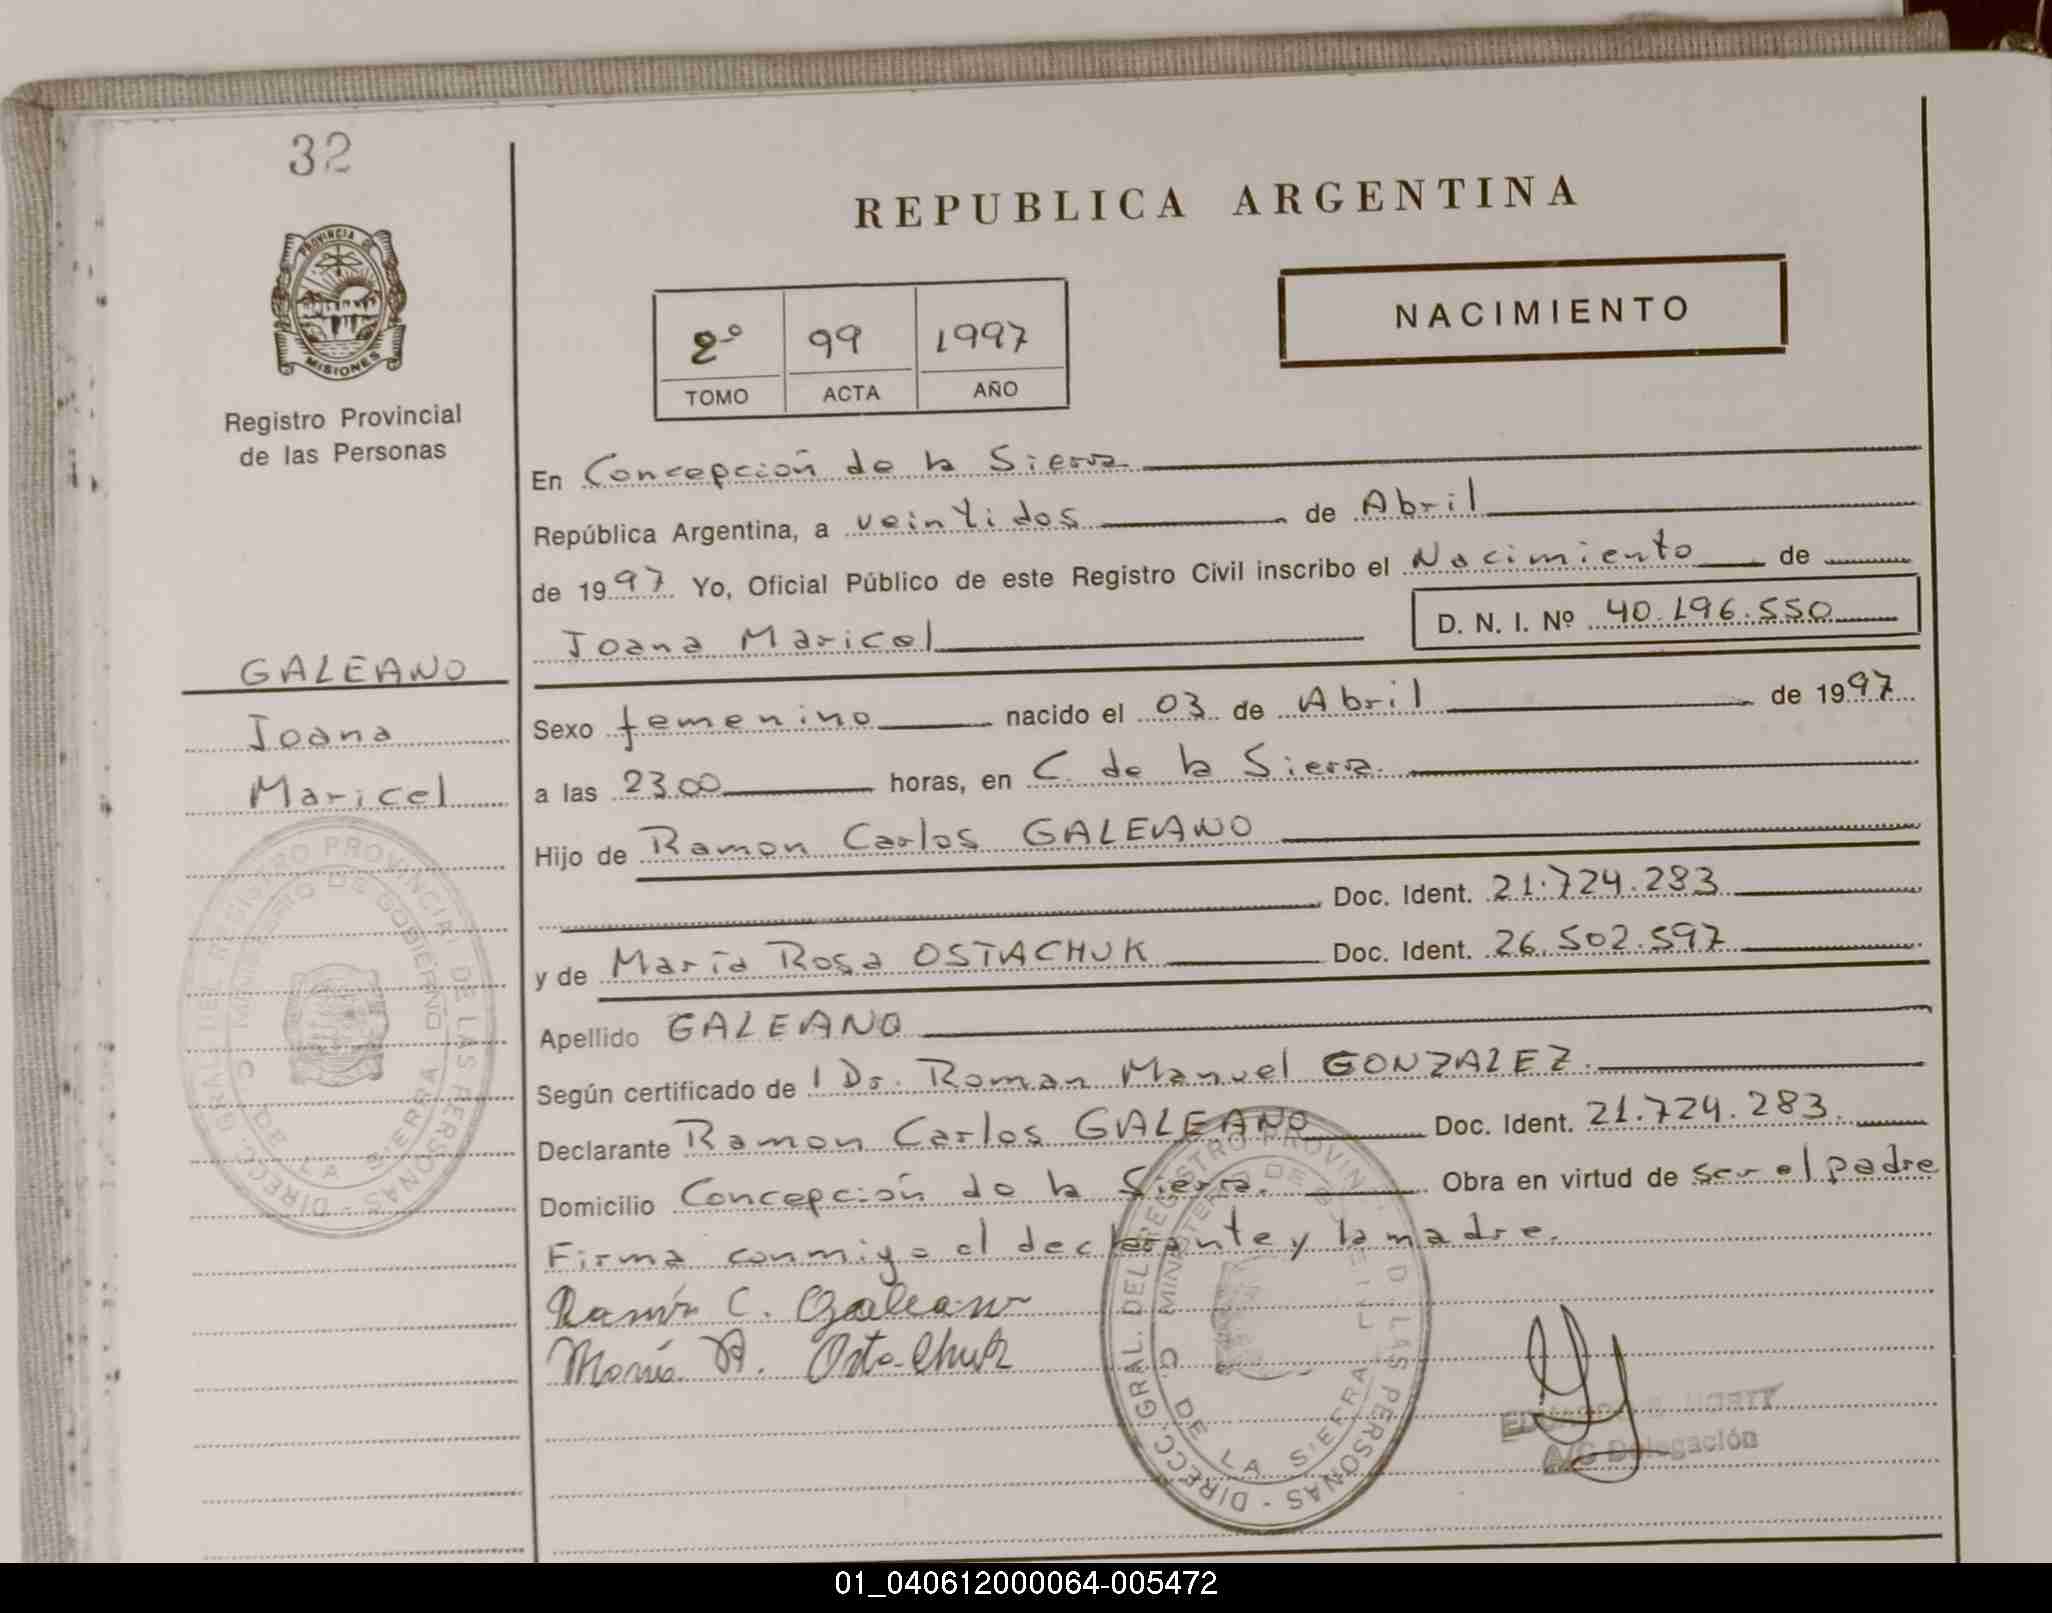 32
PROVINCIA DE
MISIONES
Registro Provincial
de las Personas
REPUBLICA ARGENTINA
NACIMIENTO
2º 99 1997
TOMO ACTA AÑO
En Concepción de la Sierra
República Argentina, a veintidos de Abril
de 1997 Yo, Oficial Público de este Registro Civil inscribo el Nacimiento de
Joana Maricel
D. N. I. Nº 40.196.550
GALEANO
Joana
Maricel
Sexo femenino nacido el 03 de Abril de 1997
a las 23.00 horas, en C. de la Sierra.
Hijo de Ramon Carlos GALEANO
Doc. Ident. 21.724.283
y de María Rosa OSTACHUK Doc. Ident. 26.502.597
Apellido GALEANO
Según certificado de l Dr. Roman Manuel GONZALEZ.
Declarante Ramon Carlos GALEANO Doc. Ident. 21.724.283.
Domicilio Concepción de la Sierra. Obra en virtud de ser el padre
Firma conmigo el declarante y la madre.
Ramón C. Galeano
María R. Ostachuk
DIRECC. GRAL. DEL REGISTRO PROVINCIAL DE LAS PERSONAS
MINISTERIO DE GOBIERNO
C. DE LA SIERRA
DIRECC. GRAL. DEL REGISTRO PROVIN D LAS PERSONAS
MINISTERIO DE
C. DE LA SIERRA
A/C Delegación
01_040612000064-005472